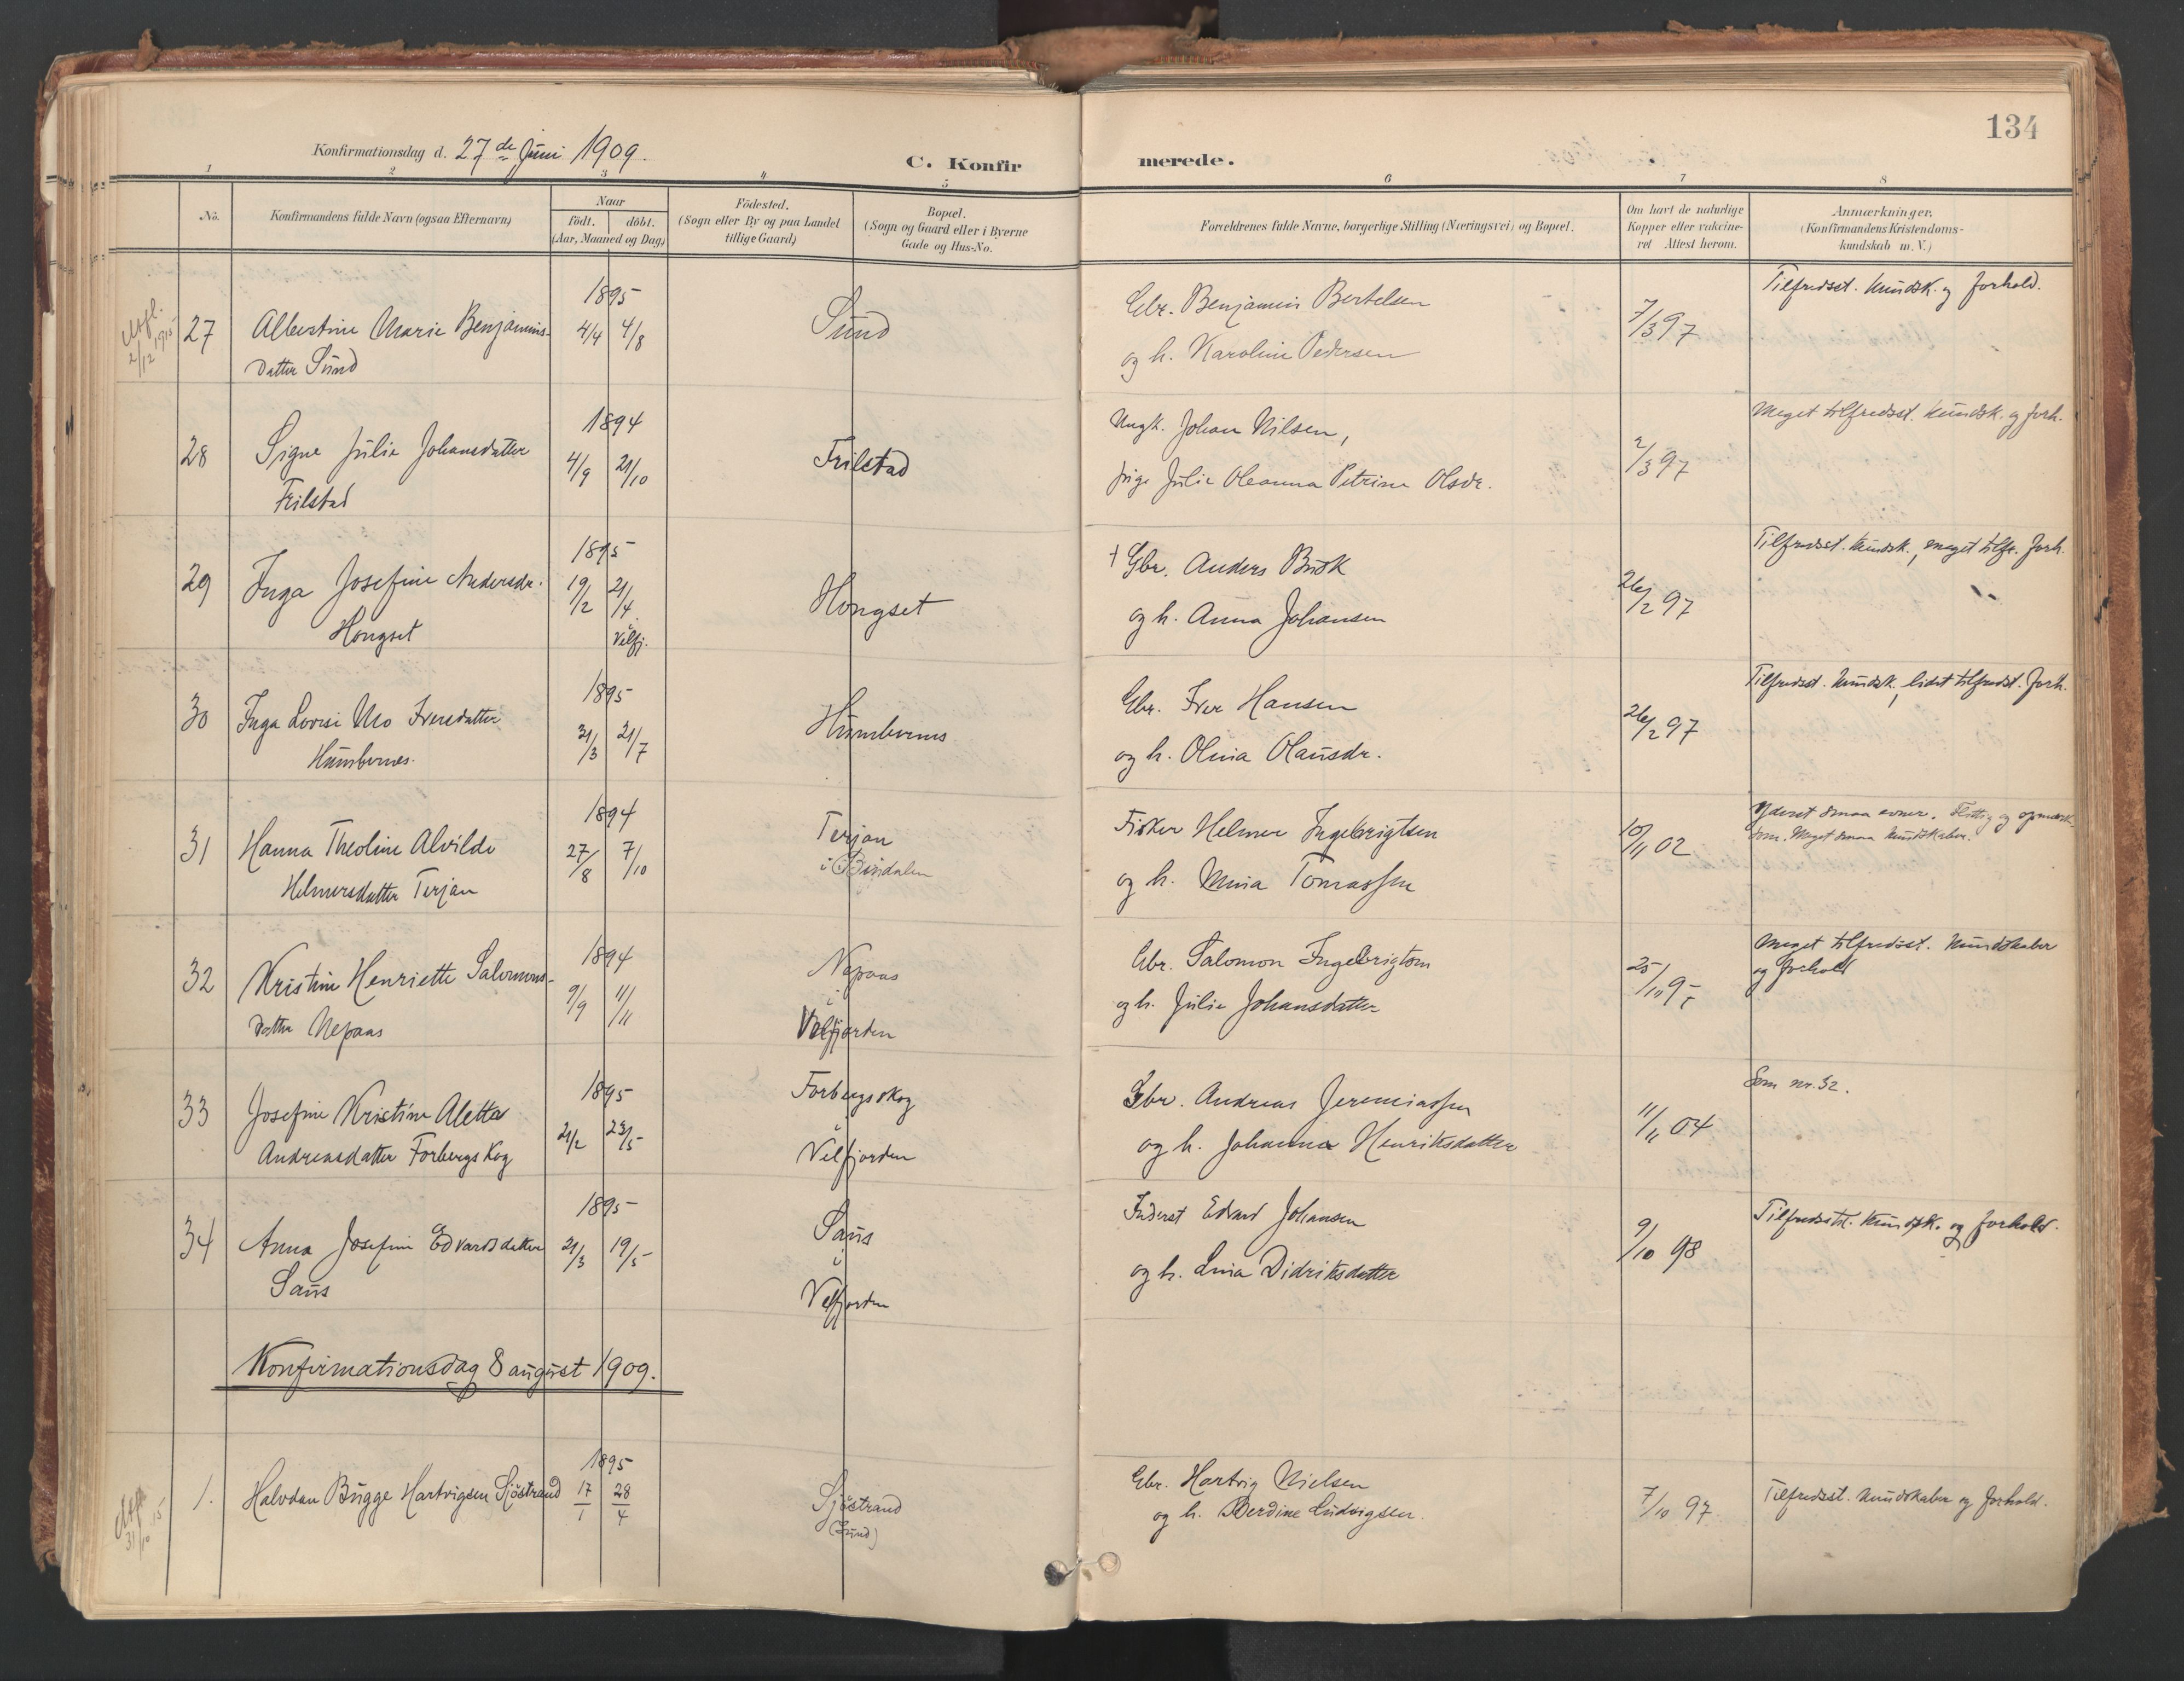 134
Konfirmationsdag d. 27de Juni 1909.
C. Konfirmerede.
1 2 3 4 5 6 7 8
No. Konfirmandens fulde Navn (ogsaa Efternavn)
Naar
födt. döbt.
(Aar, Maaned og Dag)
Födested.
(Sogn eller By og paa Landet
tillige Gaard)
Bopæl.
(Sogn og Gaard eller i Byerne
Gade og Hus-No.
Forældrenes fulde Navne, borgerlige Stilling (Næringsvei) og Bopæl.
Om havt de naturlige
Kopper eller vakcine-
ret Attest herom.
Anmærkninger.
(Konfirmandens Kristendoms-
kundskab m. V.)
2/12 1915
27 Albertine Marie Benjamins-
datter Sund
1895
4/4 4/8
Sund
Gbr. Benjamin Bertelsen
og h. Karoline Pedersen
7/3 97
Tilfredsst. kundsk. og forhold.
28 Signe Julie Johansdatter
Frilstad
1894
4/9 21/10
Frilstad
Ungk. Johan Nilsen,
pige Julie Oleanna Petrine Olsdr.
2/3 97
Meget tilfredsst. kundsk. og forh.
29 Inga Josefine Andersdr.
Hongset
1895
19/2 21/4
Velfj.
Hongset
† Gbr. Anders Busk
og h. Anna Johansen
26/2 97
Tilfredsst. kundsk., meget tilfr. forh.
30 Inga Lovise Mo Iversdatter
Humbernes.
1895
31/3 21/7
Humbernes
Gbr. Iver Hansen
og h. Olina Olausdr.
26/2 97
Tilfredsst. kundsk., lidet tilfredsst. forh.
31 Hanna Theoline Alvilde
Helmersdatter Terjan
1894
27/8 7/10
Terjan
i Bindalen
Fisker Helmer Ingebrigtsen
og h. Mina Tomassen
10/11 02
Yderst smaa evner. Flittig og opmærk-
som. Meget smaa kundskaber.
32 Kristine Henriette Salomons-
datter Nepaas
1894
9/9 11/11
Nepaas
i
Velfjorden
Gbr. Salomon Ingebrigtsen
og h. Julie Johansdatter
25/11 95
Meget tilfredsst. kundskaber
og forhold
33 Josefine Kristine Aletta
Andreasdatter Forbergskog
1895
21/2 23/5
Forbergskog
i
Velfjorden
Gbr. Andreas Jeremiassen
og h. Johanna Henriksdatter
11/11 04
Som nr. 32.
34 Anna Josefine Edvardsdatter
Saus
1895
21/3 19/5
Saus
i
Velfjorden
Inderst Edvard Johansen
og h. Lina Didriksdatter
9/10 98
Tilfredsst. kundsk. og forhold.
Konfirmationsdag 8 august 1909.
31/10 15
1. Halvdan Bugge Hartvigsen Sjöstrand
1895
17/1 28/4
Sjöstrand
(Sund)
Gbr. Hartvig Nielsen
og h. Berdine Ludvigsen.
7/10 97.
Tilfredsst. kundskaber og forhold.